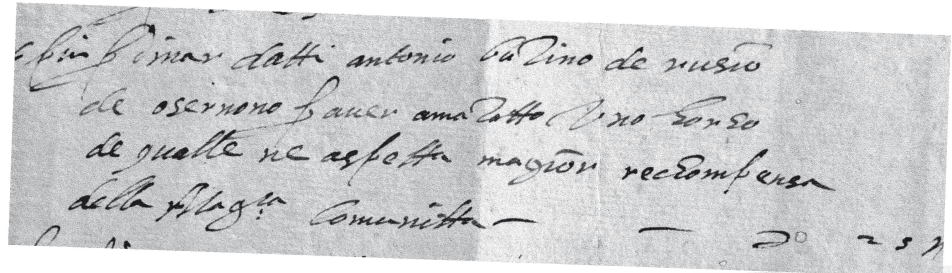 piu per dinar datti antonio buzino de rusio
de osernono per aver amazatto uno horso
de qualle ne aspetta magior rechompensa
della Magca Comunitta — — 25